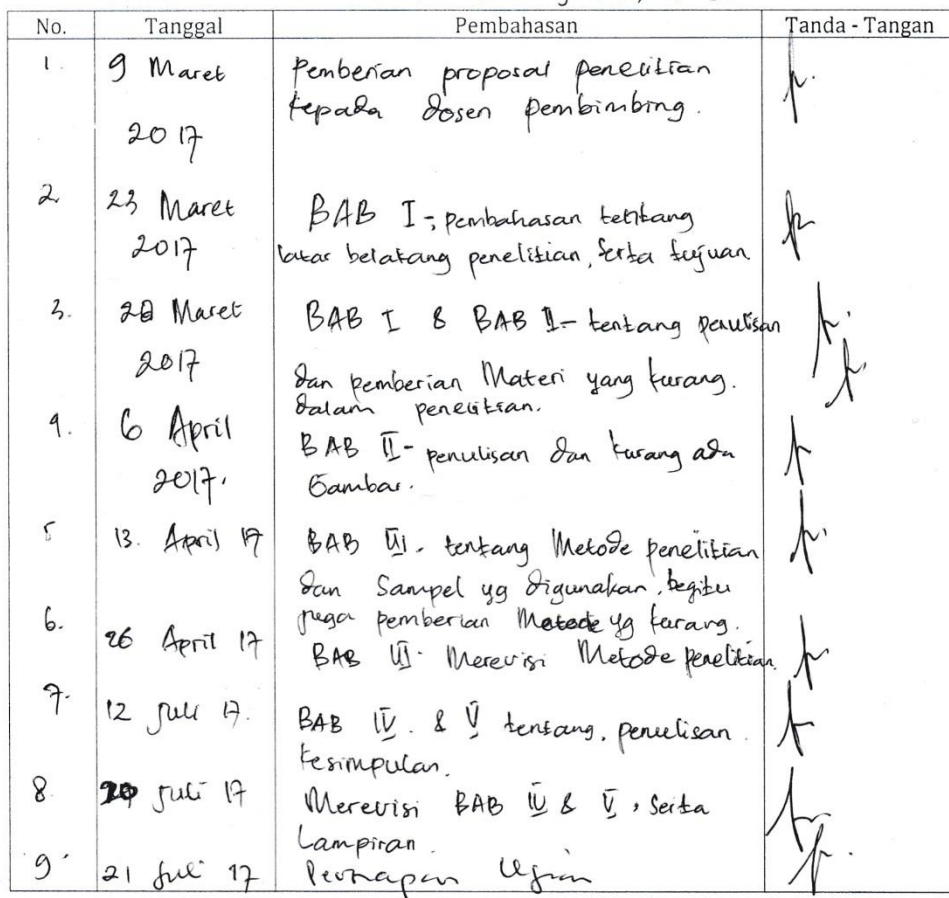 No. Tanggal Pembahasan Tanda - Tangan
1. 9 Maret 2017 Pemberian proposal penelitian
kepada dosen pembimbing.
2. 23 Maret 2017 BAB I - pembahasan tentang
latar belakang penelitian, serta tujuan
3. Maret 2017 BAB I & BAB II - tentang penulisan
dan pemberian Materi yang kurang.
dalam penelitian.
4. 6 April 2017. BAB II - penulisan dan kurang ada
Gambar.
5 13. April 17 BAB III. tentang Metode penelitian
dan Sampel yg digunakan, begitu
juga pemberian Metode yg kurang.
6. 26 April 17 BAB III. Merevisi Metode penelitian.
7. 12 Juli 17. BAB IV. & V tentang, penulisan
kesimpulan.
8. 20 Juli 17 Merevisi BAB IV & V, Serta
Lampiran.
9. 21 Juli 17 Persiapan Ujian